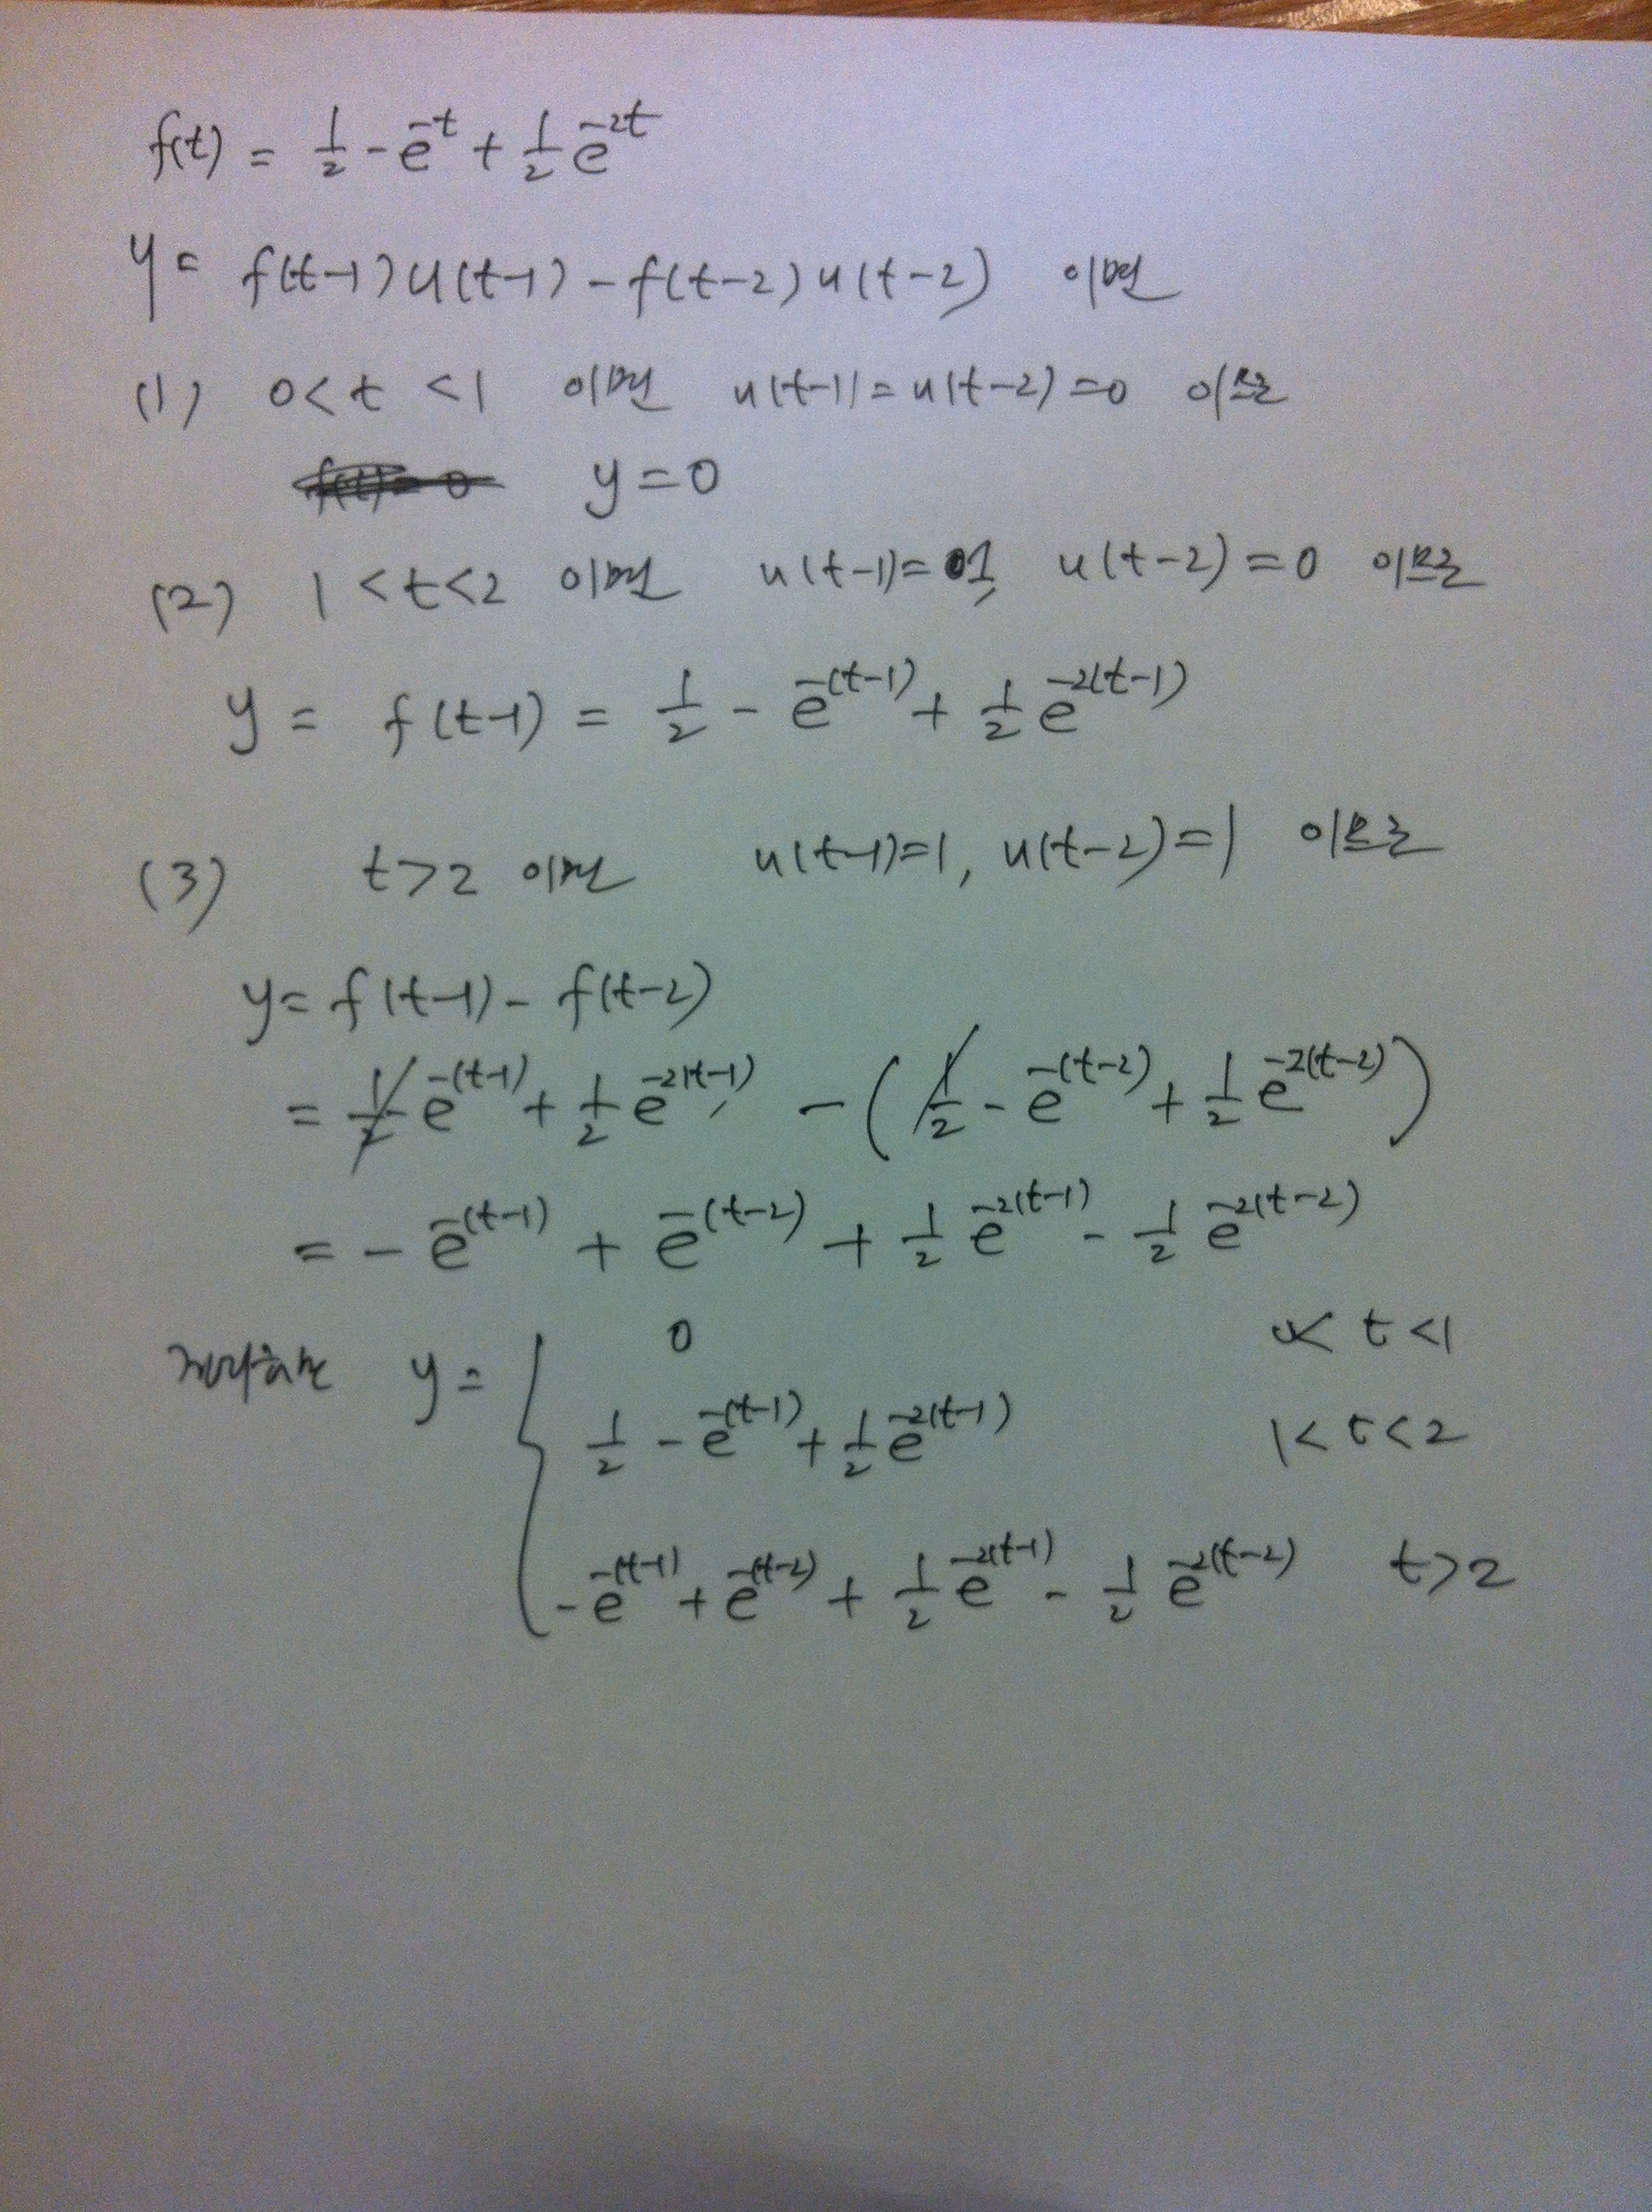 f(t) = 1/2 - e^{-t} + 1/2 e^{-2t}
y = f(t-1)u(t-1) - f(t-2)u(t-2) 이면
(1) 0<t<1 이면 u(t-1)=u(t-2)=0 이므로
y=0
(2) 1<t<2 이면 u(t-1)=1, u(t-2)=0 이므로
y = f(t-1) = 1/2 - e^{-(t-1)} + 1/2 e^{-2(t-1)}
(3) t>2 이면 u(t-1)=1, u(t-2)=1 이므로
y= f(t-1) - f(t-2)
= 1/2 - e^{-(t-1)} + 1/2 e^{-2(t-1)} - (1/2 - e^{-(t-2)} + 1/2 e^{-2(t-2)})
= - e^{-(t-1)} + e^{-(t-2)} + 1/2 e^{-2(t-1)} - 1/2 e^{-2(t-2)}
y = { 0 0< t <1
1/2 - e^{-(t-1)} + 1/2 e^{-2(t-1)} 1< t <2
- e^{-(t-1)} + e^{-(t-2)} + 1/2 e^{-2(t-1)} - 1/2 e^{-2(t-2)} t>2